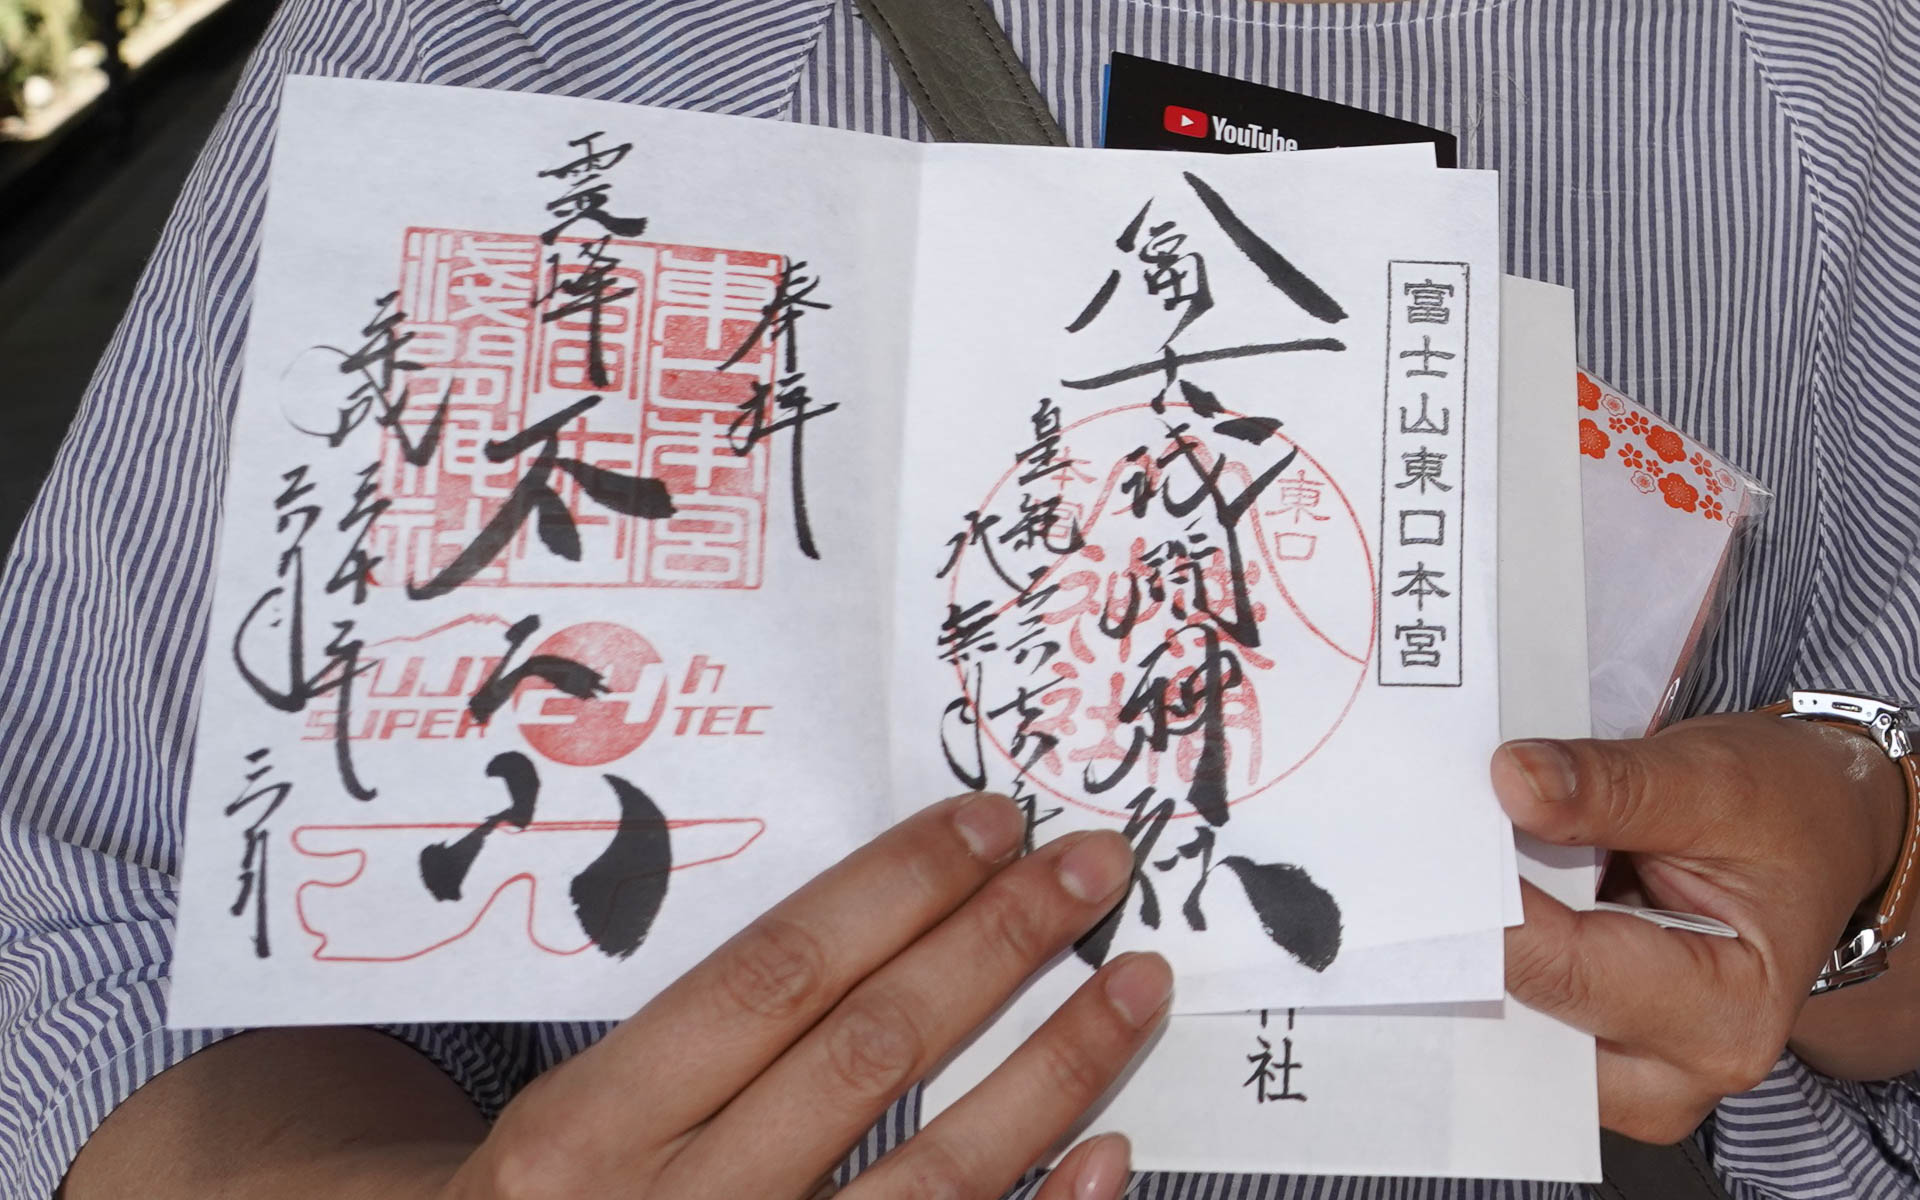 YouTube
富士山東口本宮
冨士浅間神社
皇紀二六七八年
水無月
東口
本宮
奉拝
東口本宮
冨士
浅間神社
霊峰
不二山
平成
三十年
六月
三日
FUJI
SUPER
24h
TEC
神社